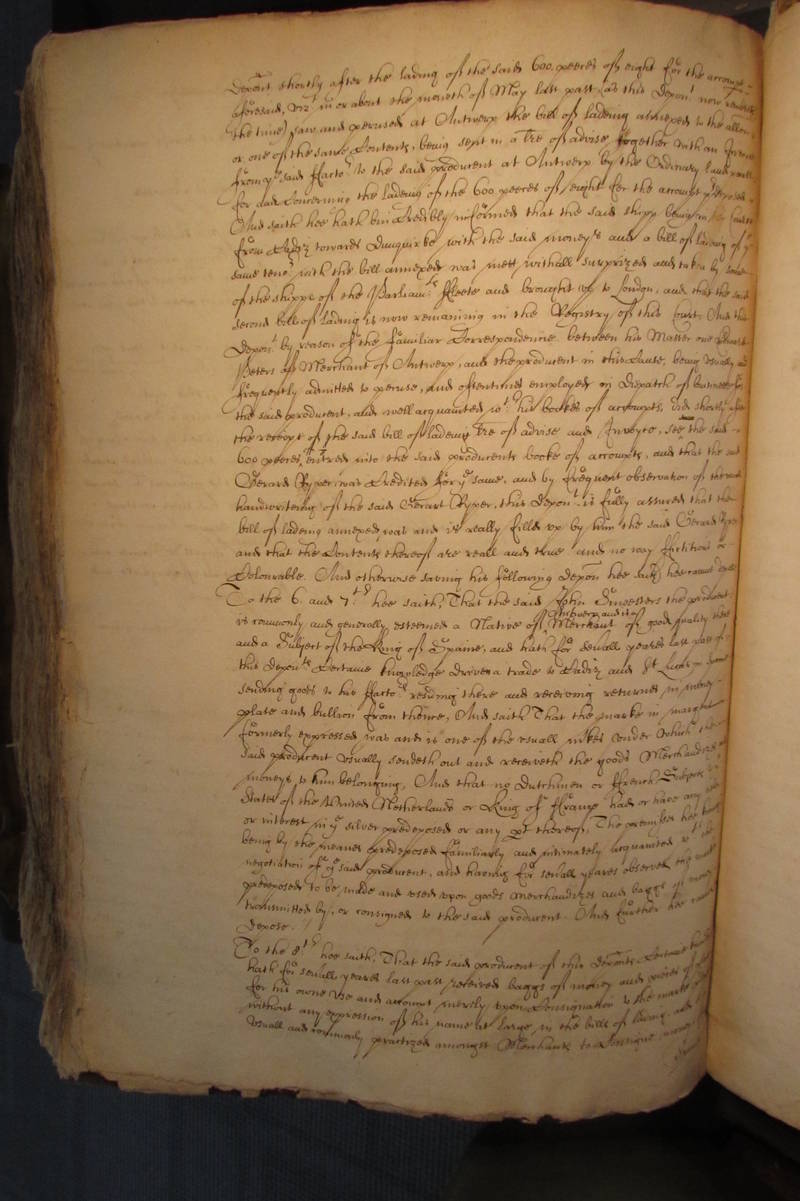 depon.t shortly after the lading of the said 600. peeces of eight for the accompt
aforesaid, viz.t in or about the moneth of May last past (as this depon.t now remembreth
the time) saw, and perused at Antwerp the bill of lading annexed to the allon,
or one of the same Contents, being sent in a l're of advise together with an Invoice
from y.e said Factor to the said producent at Antwerp by the Ordinary
for and Concerning the ladeing of the 600 peeces of eight for the accompt p'deposed
And saith hee hath bin Credibly informed that the said shipp being in her Course
from Cadiz towards Dunquirke with the said moneys and a bill of lading of y.e
same teno.r with the bill annexed was mett withall surprized and taken by some
of the shipps of the Parliam.ts Fleete and brought up to London, and that the said
second bill of lading is now remaining in the Registry of this Court. And this
depon.t by reason of the familiar Correspondencie between his Master one
Peters a Merchant of Antwerp, and the producent in this Cause, being usually and
frequently admitted to peruse, and oftentimes employed in dispatch of businesse for
the said producent, and well acquainted w.th his bookes of accompts, did shortly after
the receipt of the said bill of ladeing l're of advise and Invoyce, see the said
600 peeces entred into the said producents booke of accompts, and that the said
Gerard Ryper was Credited for y.e same, and by frequent observation of the
handwriteing of the said Gerart Ryper, this depon.t is fully assured that the
bill of ladeing annexed was and is really filled up by him the said Gerard Ryper
and that the Contents thereof are reall and true and no way fictitious or
Colourable. And otherwise saving his following depon hee saith hee cannot depose
To the 6. and 7.th hee saith, That the said John the producent
Antwerp and is a
is commonly and generally esteemed a Native of Merchant of good quality there
and a Subject of the King of Spaine, and hath for severall yeares last past of
this depon.ts Certaine knowledge driven a trade to Cadiz and S.t Lucar in Spaine
sending goods to his Factors residing there and receiving returnes in money
plate and bullion from thence, And saith That the marke in margent
formerly expressed was and is one of the usuall markes under which the
said producent usually sendeth out and receiveth the goods Merchandizes
moneys to him belonging, And that no Dutchmen or French Subjects
States of the United Netherlands or King of France had or have any
or interest in y.e silver predeposed or any p.t thereof, The premisses hee
being by the meanes predeposed familiarly and intimately acquainted w.th the
negotiation of y.e said producent, and having for severall yeares observed the marke
predeposed to be made and used upon goods Merchandizes and baggs of money
transmitted by, or consigned to the said producent. And further hee cannot
depose.
To the 8.th hee saith, That the said producent of this deponts Certaine knowledge
hath for severall yeares last past received baggs of money and peeces of
for his owne use and accompt meerly upon Consignation to the marke
without any expression of his name at large in the bills of lading, and
usuall and commonly practized amongst Merchants to Consigne